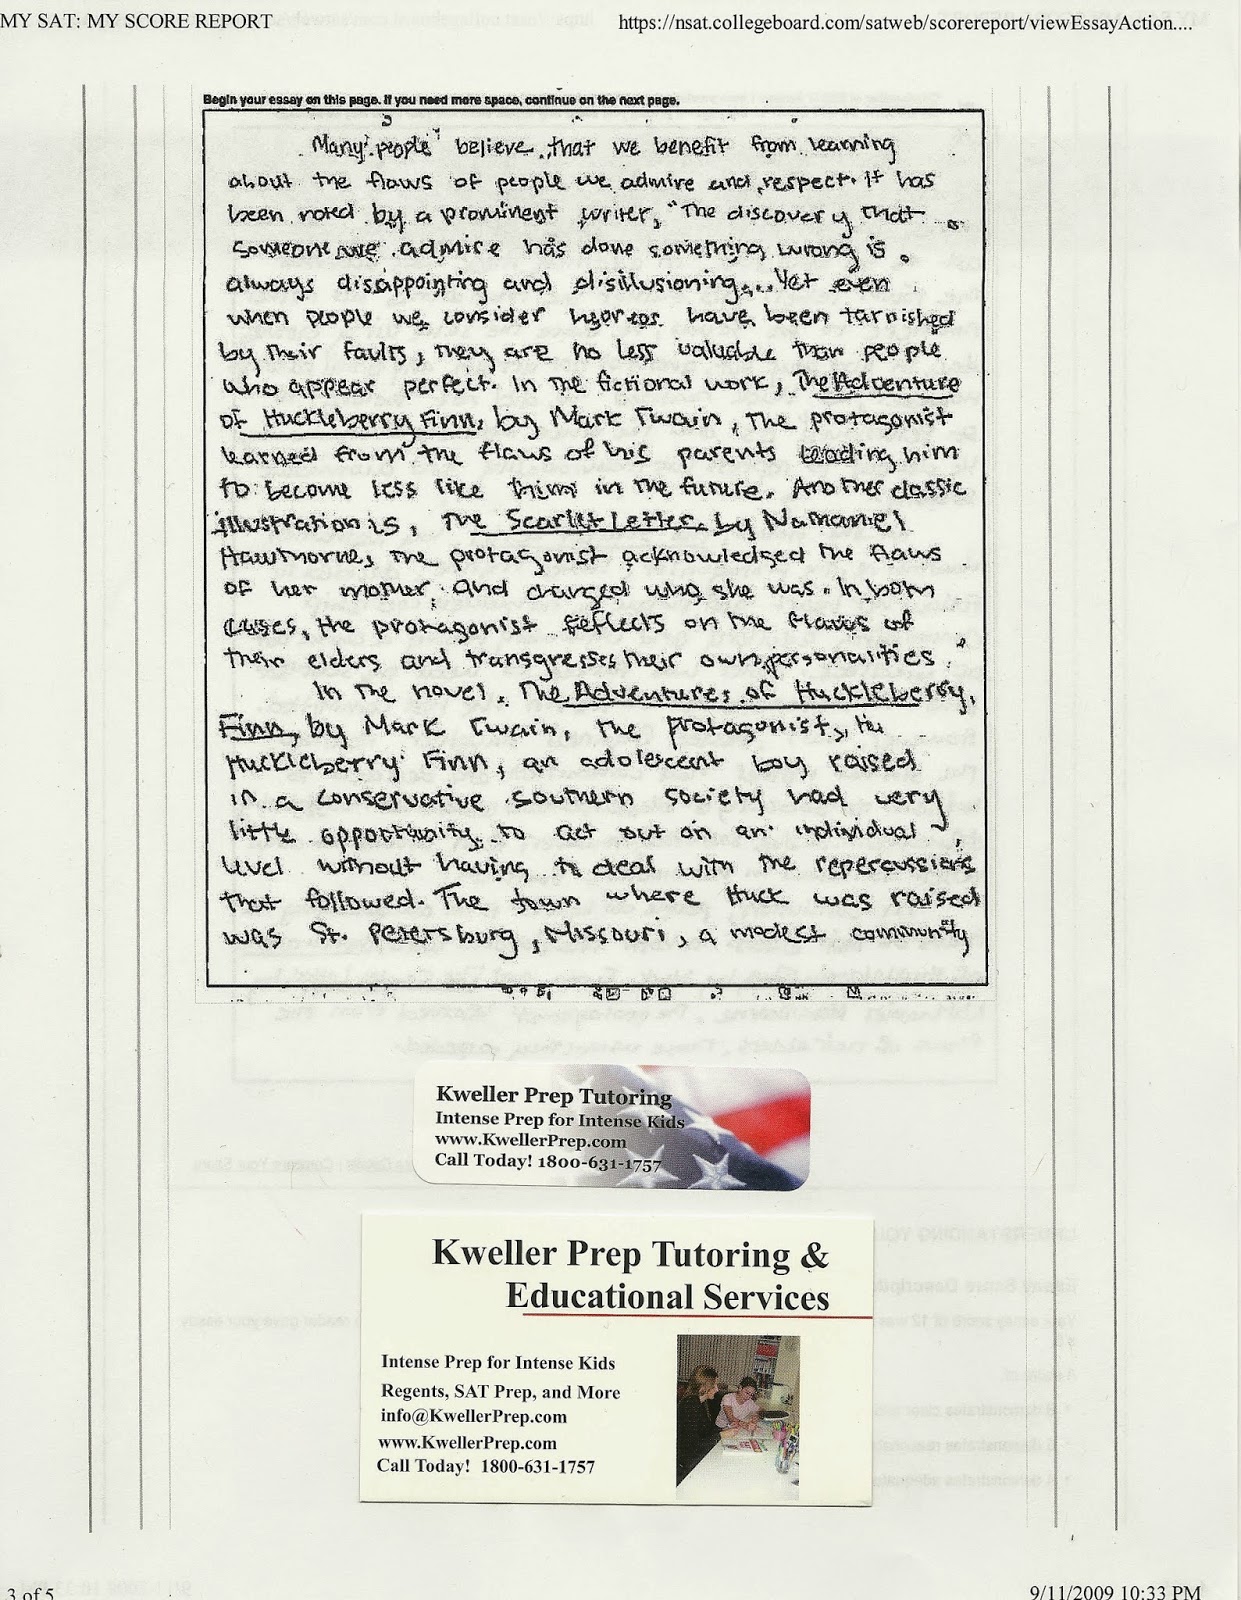 MY SAT: MY SCORE REPORT
https://nsat.collegeboard.com/satweb/scorereport/viewEssayAction....
Begin your essay on this page. If you need more space, continue on the next page.
Many people believe that we benefit from learning
about the flaws of people we admire and respect. It has
been noted by a prominent writer, "The discovery that
someone we admire has done something wrong is
always disappointing and disillusioning... Yet even
when people we consider have been tarnished
by their faults, they are no less valuable than people
who appear perfect. In the fictional work, The Adventure
of Huckleberry Finn, by Mark Twain, the protagonist
learned from the flaws of his parents leading him
to become less like them in the future. Another classic
illustration is, The Scarlet Letter by Nathaniel
Hawthorne, the protagonist acknowledged the flaws
of her mother and changed who she was. In both
cases, the protagonist reflects on the flaws of
their elders and transgresses their own personalities.
In the novel, The Adventures of Huckleberry
Finn, by Mark Twain, the protagonist,
Huckleberry Finn, an adolescent boy raised
in a conservative southern society had very
little opportunity to act out on an individual
level without having to deal with the repercussions
that followed. The town where Huck was raised
was St. Petersburg, Missouri, a modest community
Kweller Prep Tutoring
Intense Prep for Intense Kids
www.KwellerPrep.com
Call Today! 1800-631-1757
Kweller Prep Tutoring &
Educational Services
Intense Prep for Intense Kids
Regents, SAT Prep, and More
info@KwellerPrep.com
www.KwellerPrep.com
Call Today! 1800-631-1757
3 of 5
9/11/2009 10:33 PM